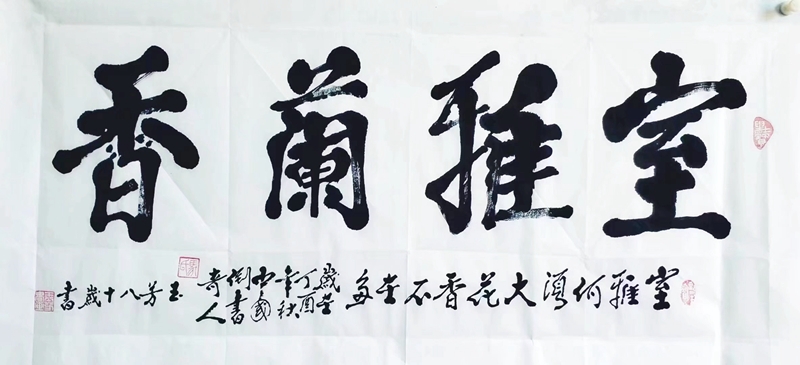 室雅蘭香
室雅何須大花香不在多
歲在
丁酉
年秋
中國
倒書
奇人
玉芳八十歲書